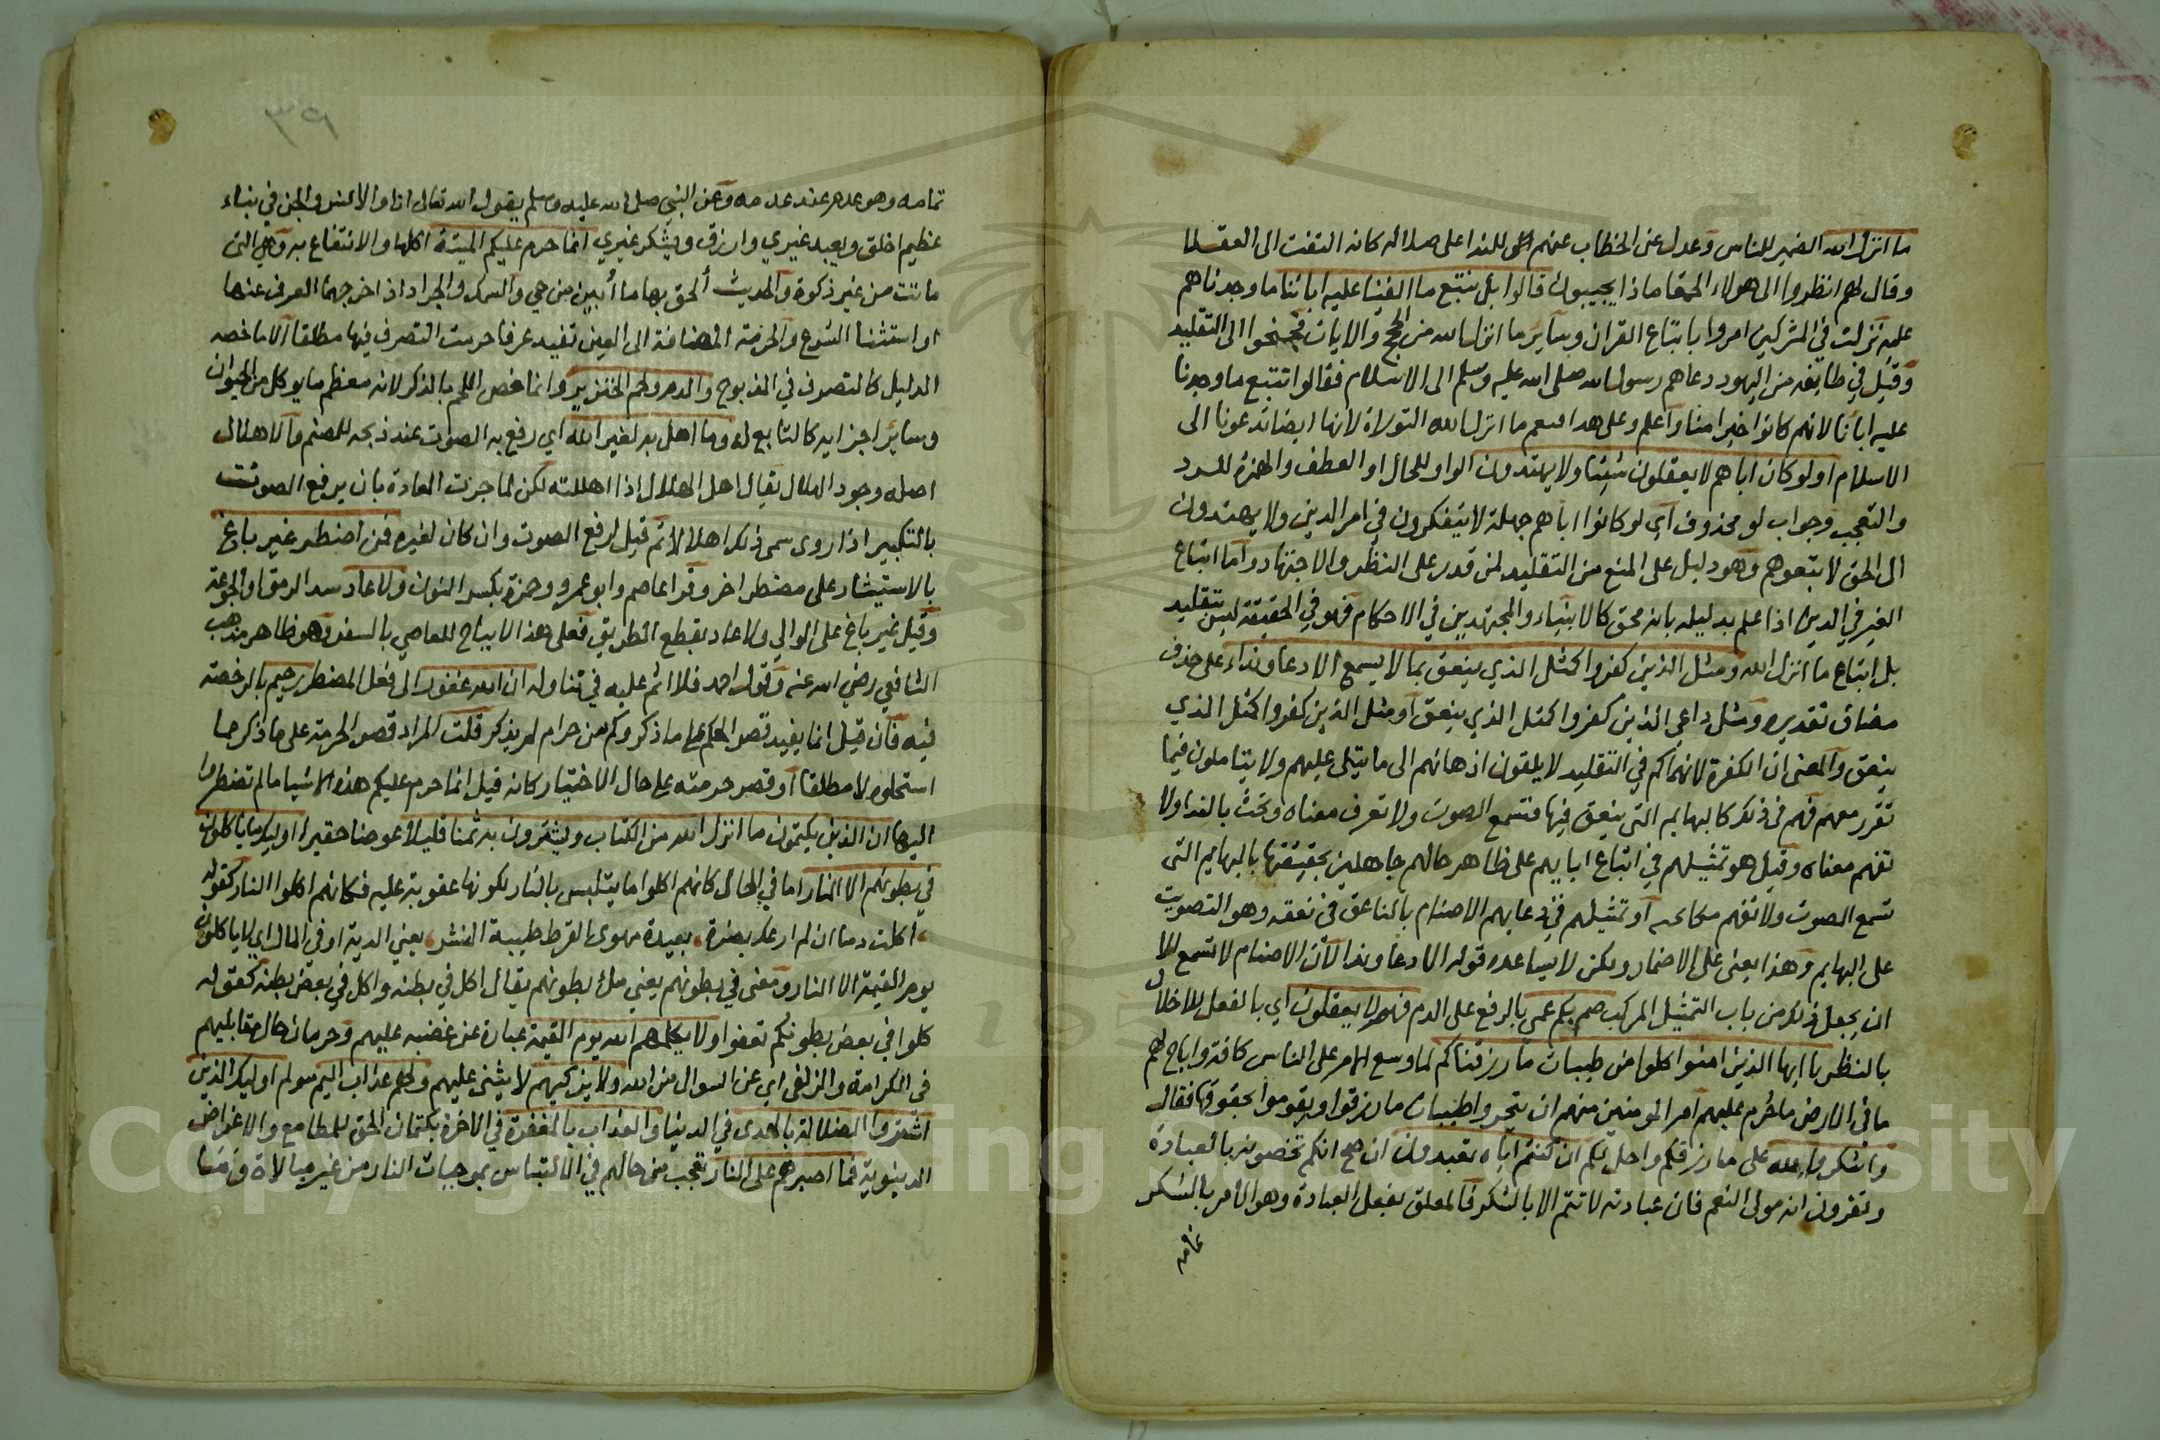 ما انزل الله الضمير للناس وعدل عن الخطاب عنهم للندا على ضلالهم كانه التفت الى العقلا
وقال لهم انظروا الى هولاء الحمقا ماذا يجيبون قالوا بل نتبع ما الفينا عليه ابائنا ما وجدناهم
عليه نزلت في المشركين امروا باتباع القران وساير ما انزل الله من الحجج والايات فجنحوا الى التقليد
وقيل في طايفه من اليهود دعاهم رسول الله صلى الله عليه وسلم الى الاسلام فقالوا نتبع ما وجدنا
عليه اباَنا لانهم كانوا خيرا منا واعلم وعلى هذا فيعم ما انزل الله التوراة لانها ايضا تدعونا الى
الاسلام اولو كان اباهم لا يعقلون شيئا ولا يهتدون الواو للحال او العطف والهمزة للرد
والتعجب وجواب لو محذوف اي لو كانوا اباهم جهلة لا يتفكرون في امر الدين ولا يهتدون
الى الحق لاتبعوهم وهو دليل على المنع من التقليد لمن قدر على النظر والاجتهاد واما اتباع
الغير في الدين اذا علم بدليله بانه محق كالانبياء والمجتهدين في الاحكام فهو في الحقيقة ليس بتقليد
بل اتباع ما انزل الله ومثل الذين كفروا كمثل الذي ينعق بما لا يسمع الا دعا ونداء على حذف
مضاف تقديره ومثل داعي الذين كفروا كمثل الذي ينعق او مثل الذين كفروا كمثل الذي
ينعق والمعنى ان الكفرة لانهماكهم في التقليد لا يلقون اذهانهم الى ما يتلى عليهم ولا يتاملون فيما
تقرر معهم فهم في ذلك كالبهايم التي ينعق فيها فتسمع الصوت ولا تعرف معناه وتحث بالندا ولا
تفهم معناه وقيل هو تمثيلهم في اتباع ابايهم على ظاهر حالهم جاهلين بحقيقتها بالبهايم التى
تسمع الصوت ولا تفهم ما تحته او تمثيلهم في دعايهم الاصنام بالناعق في نعقه وهو التصويت
على البهايم وهذا يغنى على الاضمار ولكن لا يساعده قوله الا دعا وندا لان الاصنام لا تسمع الا
ان يجعل ذلك من باب التمثيل المركب صم بكم عمي بالرفع على الذم فهم لا يعقلون اي بالفعل للاخلال
بالنظر يا ايها الذين امنوا كلوا من طيبات ما رزقناكم لما وسع الامر على الناس كافة واباح لهم
ما في الارض ما حُرم عليهم امر المومنين منهم ان يتحروا طيبات ما رزقوا ويقوموا بحقوقها فقال
واشكروا لله على ما رزقكم واحل لكم ان كنتم اياه تعبدون ان صح انكم تخصونه بالعبادة
وتقرون انه مولى النعم فان عبادته لا تتم الا بالشكر فالمعلق بفعل العبادة وهو الامر بالشكر
تمامه
٣٩
تمامه وهو عدم عند عدمه وعن النبي صلى الله عليه وسلم يقول الله تعالى انا والانس والجن في نباء
عظيم اخلق ويعبد غيري وارزق ويشكر غيري انما حرم عليكم الميتة اكلها والانتفاع به وهي التى
ماتت من غير ذكوة والحديث ألحق بها ما أُبين من حي والسمك والجراد اخرجهما العرف عنها
او استثنا الشرع والحرمة المضافة الى العين تفيد عرفا حرمت التصرف فيها مطلقا الا ما خصه
الدليل كالتصرف في المذبوح والدم ولحم الخنزير وانما خص اللحم بالذكر لانه معظم ما يوكل من الحيوان
وساير اجزايه كالتابع له وما اهل به لغير الله اي رفع به الصوت عند ذبحه للصنم والاهلال
اصله وجود الهلال يقال اهل الهلال اذا اهللته لكن لما جرت العادة بان يرفع الصوت
بالتكبير اذا روى سمى ذلك اهلالا ثم قيل لرفع الصوت وان كان لغيره فمن اضطر غير باغ
بالاستيثار على مضطر اخر وقرا عاصم وابو عمرو وحمزة بكسر النون ولا عاد سد الرمق او الجوعة
وقيل غير باغ على الوالي ولا عاد بقطع الطريق فعلى هذا لا يباح للعاصي بالسفر وهو ظاهر مذهب
الشافعي رضي الله عنه وقول احمد فلا اثم عليه في تناوله ان الله غفور الى فعل المضطر رحيم بالرخصة
فيه فان قيل انما يفيد قصر الحكم على ما ذكر وكم من حرام لم يذكر قلت المراد قصر الحرمة على ما ذكر مما
استحلوه لا مطلقا او قصر حرمته على حال الاختيار كانه قيل انما حرم عليكم هذه الاشيا ما لم تضطروا
اليها ان الذين يكتمون ما انزل الله من الكتاب ويشترون به ثمنا قليلا عوضا حقيرا اوليك ما ياكلون
في بطونهم الا النار اما في الحال كانهم اكلوا ما يتلبس بالنار لكونها عقوبة عليه فكانهم اكلوا النار كقوله
اكلت دما ان لم ارعك بضرة بعيدة مهوى القرط طيبة النشر يعني الدية او في المال اي لا ياكلون
يوم القيمة الا النار ومعنى في بطونهم يعني ملء بطونهم يقال اكل في بطنه واكل في بعض بطنه كقوله
كلوا في بعض بطونكم تعفوا ولا يكلمهم الله يوم القيمة عبارة عن غضبه عليهم وحرمان حال مقابليهم
في الكرامة والزلفى اي عن السوال من الله ولا يزكيهم لا يثنى عليهم ولهم عذاب اليم مولم اوليك الذين
اشتروا الضلالة بالهدى في الدنيا والعذاب بالمغفرة في الاخرة بكتمان الحق للمطامع والاغراض
الدنيوية فما اصبرهم على النار تعجب من حالهم في الالتباس بموجبات النار من غير مبالاة وما
Copyright © King Saud University